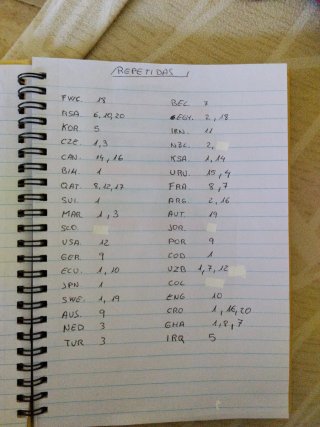 REPETIDAS
FWC. 18
RSA. 6,19,20
KOR 5
CZE. 1,3
CAN. 14,16
BIH. 1
QAT. 8,12,17
SUI. 1
MAR 1,3
SCO.
USA. 12
GER. 9
ECU. 1,10
JPN 1
SWE. 1,19
AUS. 9
NED 3
TUR 3
BEL 7
EGY. 2,18
IRN. 11
NZL. 2,
KSA. 1,14
URU. 15,4
FRA 8,7
ARG 2,16
AUT. 19
JOR.
POR 9
COD 1
UZB 1,7,12
COL
ENG 10
CRO 1,16,20
GHA 1,2,7
IRQ 5